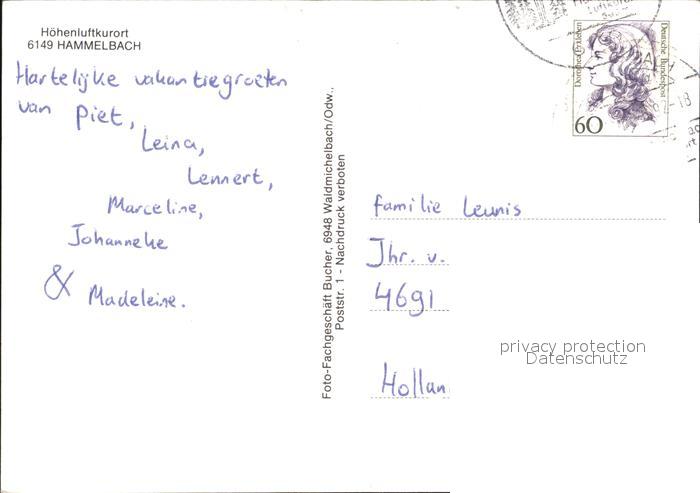 Höhenluftkurort
6149 HAMMELBACH
Hartelijke vakantiegroeten
van Piet,
Leina,
Lennert,
Marceline,
Johanneke
& Madeleine.
Foto-Fachgeschäft Bucher, 6948 Waldmichelbach/Odw.,
Poststr. 1 - Nachdruck verboten
Dorothea Erxleben
Deutsche Bundespost
60
familie Leunis
Jhr. v.
4691
Hollan
privacy protection
Datenschutz